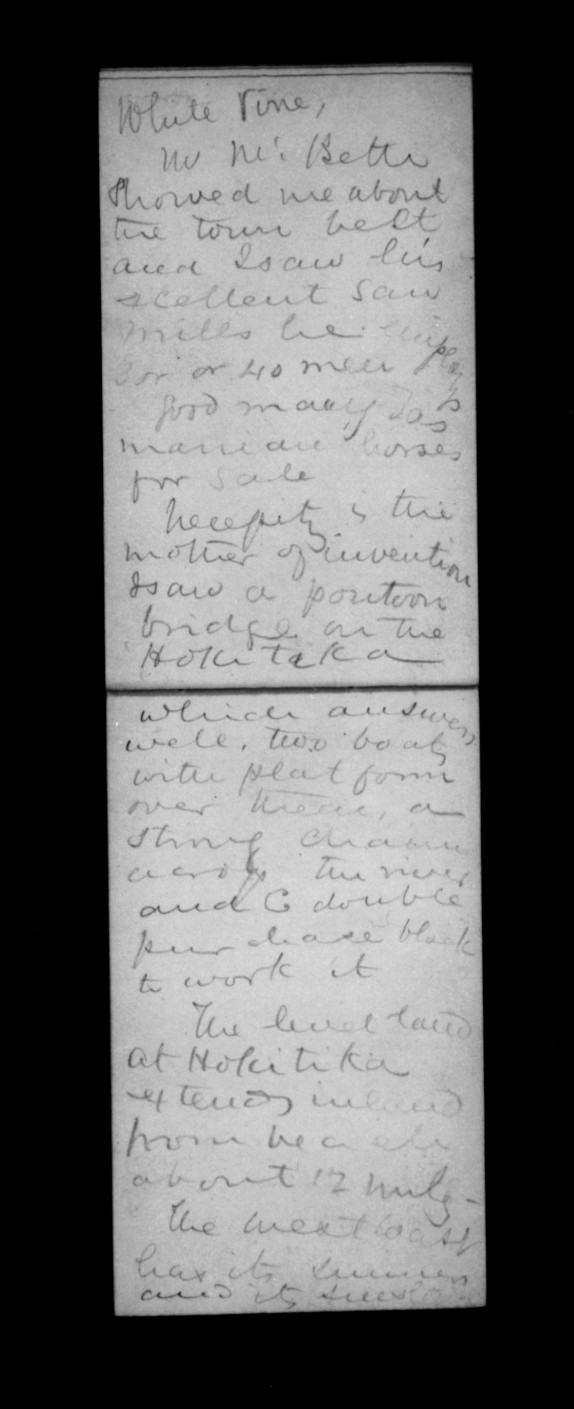 White Pine,
Mr Mc. Beth
Showed me about
the town belt
and I saw his
excellent Saw
mills he employs
30 or 40 men
Good many Tas
manian horses
for Sale
Necessity is the
mother of invention
I saw a pontoon
bridge on the
Hokitika
which answers
well, two boats
with platform
over them, a
strong chain
across the river
and a double
purchase block
to work it
The level land
at Hokitika
extends inland
from beach
about 12 miles -
The West Coast
has its
and its